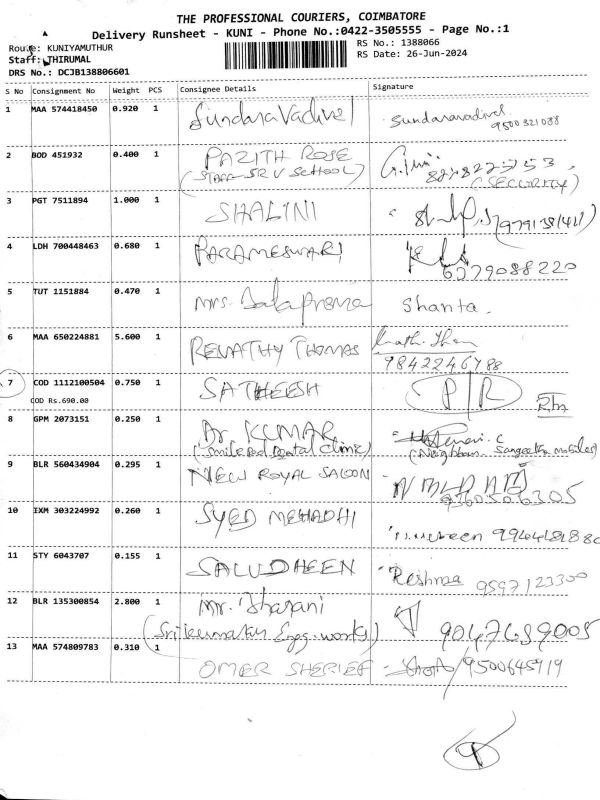 THE PROFESSIONAL COURIERS, COIMBATORE
Delivery Runsheet - KUNI - Phone No.:0422-3505555 - Page No.:1
Route: KUNIYAMUTHUR
RS No.: 1388066
Staff: THIRUMAL
RS Date: 26-Jun-2024
DRS No.: DCJB138806601
S No Consignment No Weight PCS Consignee Details Signature
1 MAA 574418450 0.920 1 SundaraVadivel Sundaravadivel
9500321088
2 BOD 451932 0.400 1 PAZITH ROSE
(STAFF SRV SCHOOL) (SECURITY)
3 PGT 7511894 1.000 1 SHALINI
4 LDH 700448463 0.680 1 PARAMESWARI
6379088220
5 TUT 1151884 0.470 1 Mrs. BalaPrema Shanta.
6 MAA 650224881 5.600 1 REVATHY THOMAS
9842246788
7 COD 1112100504 0.750 1 SATHEESH P/R
COD Rs.690.00 Rtn
8 GPM 2073151 0.250 1 Dr. KUMAR
(Smile Dental Clinic) (Neighbour Sangeetha mobiles)
9 BLR 560434904 0.295 1 NEW ROYAL SALOON
9360506305
10 IXM 303224992 0.260 1 SYED MEHADHI
11 STY 6043707 0.155 1 SALUDHEEN Reshma 9597123300
12 BLR 135300854 2.800 1 Mr. Dharani
(Srikumaran Engg. works) 9047689005
13 MAA 574809783 0.310 1 OMER SHERIEF 9500645919